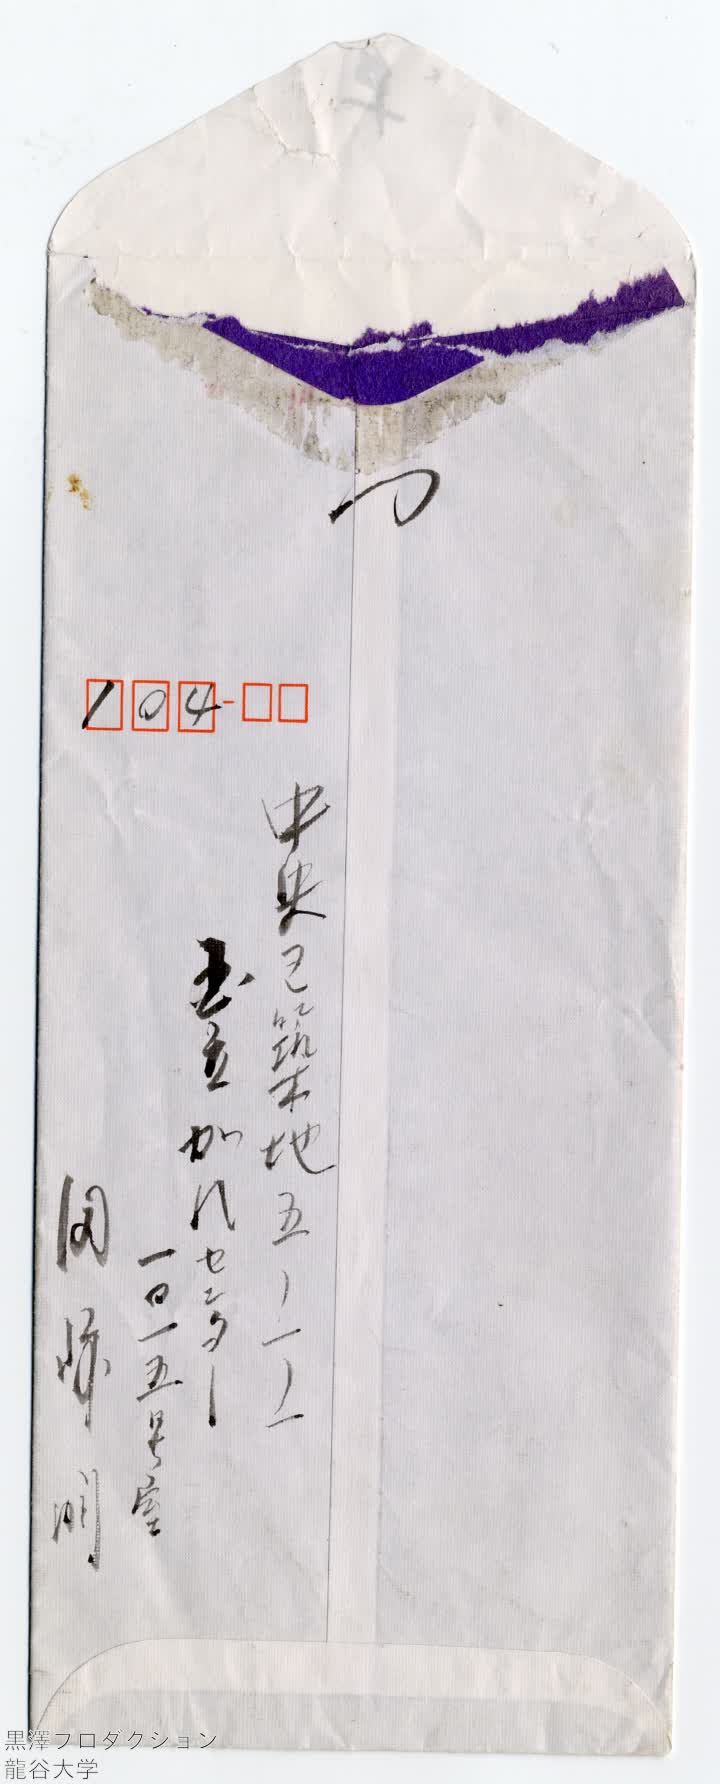 〆
104
中央区築地五ノ一ノ一
国立がんセンター
一〇一五号室
黒澤プロダクション
龍谷大学